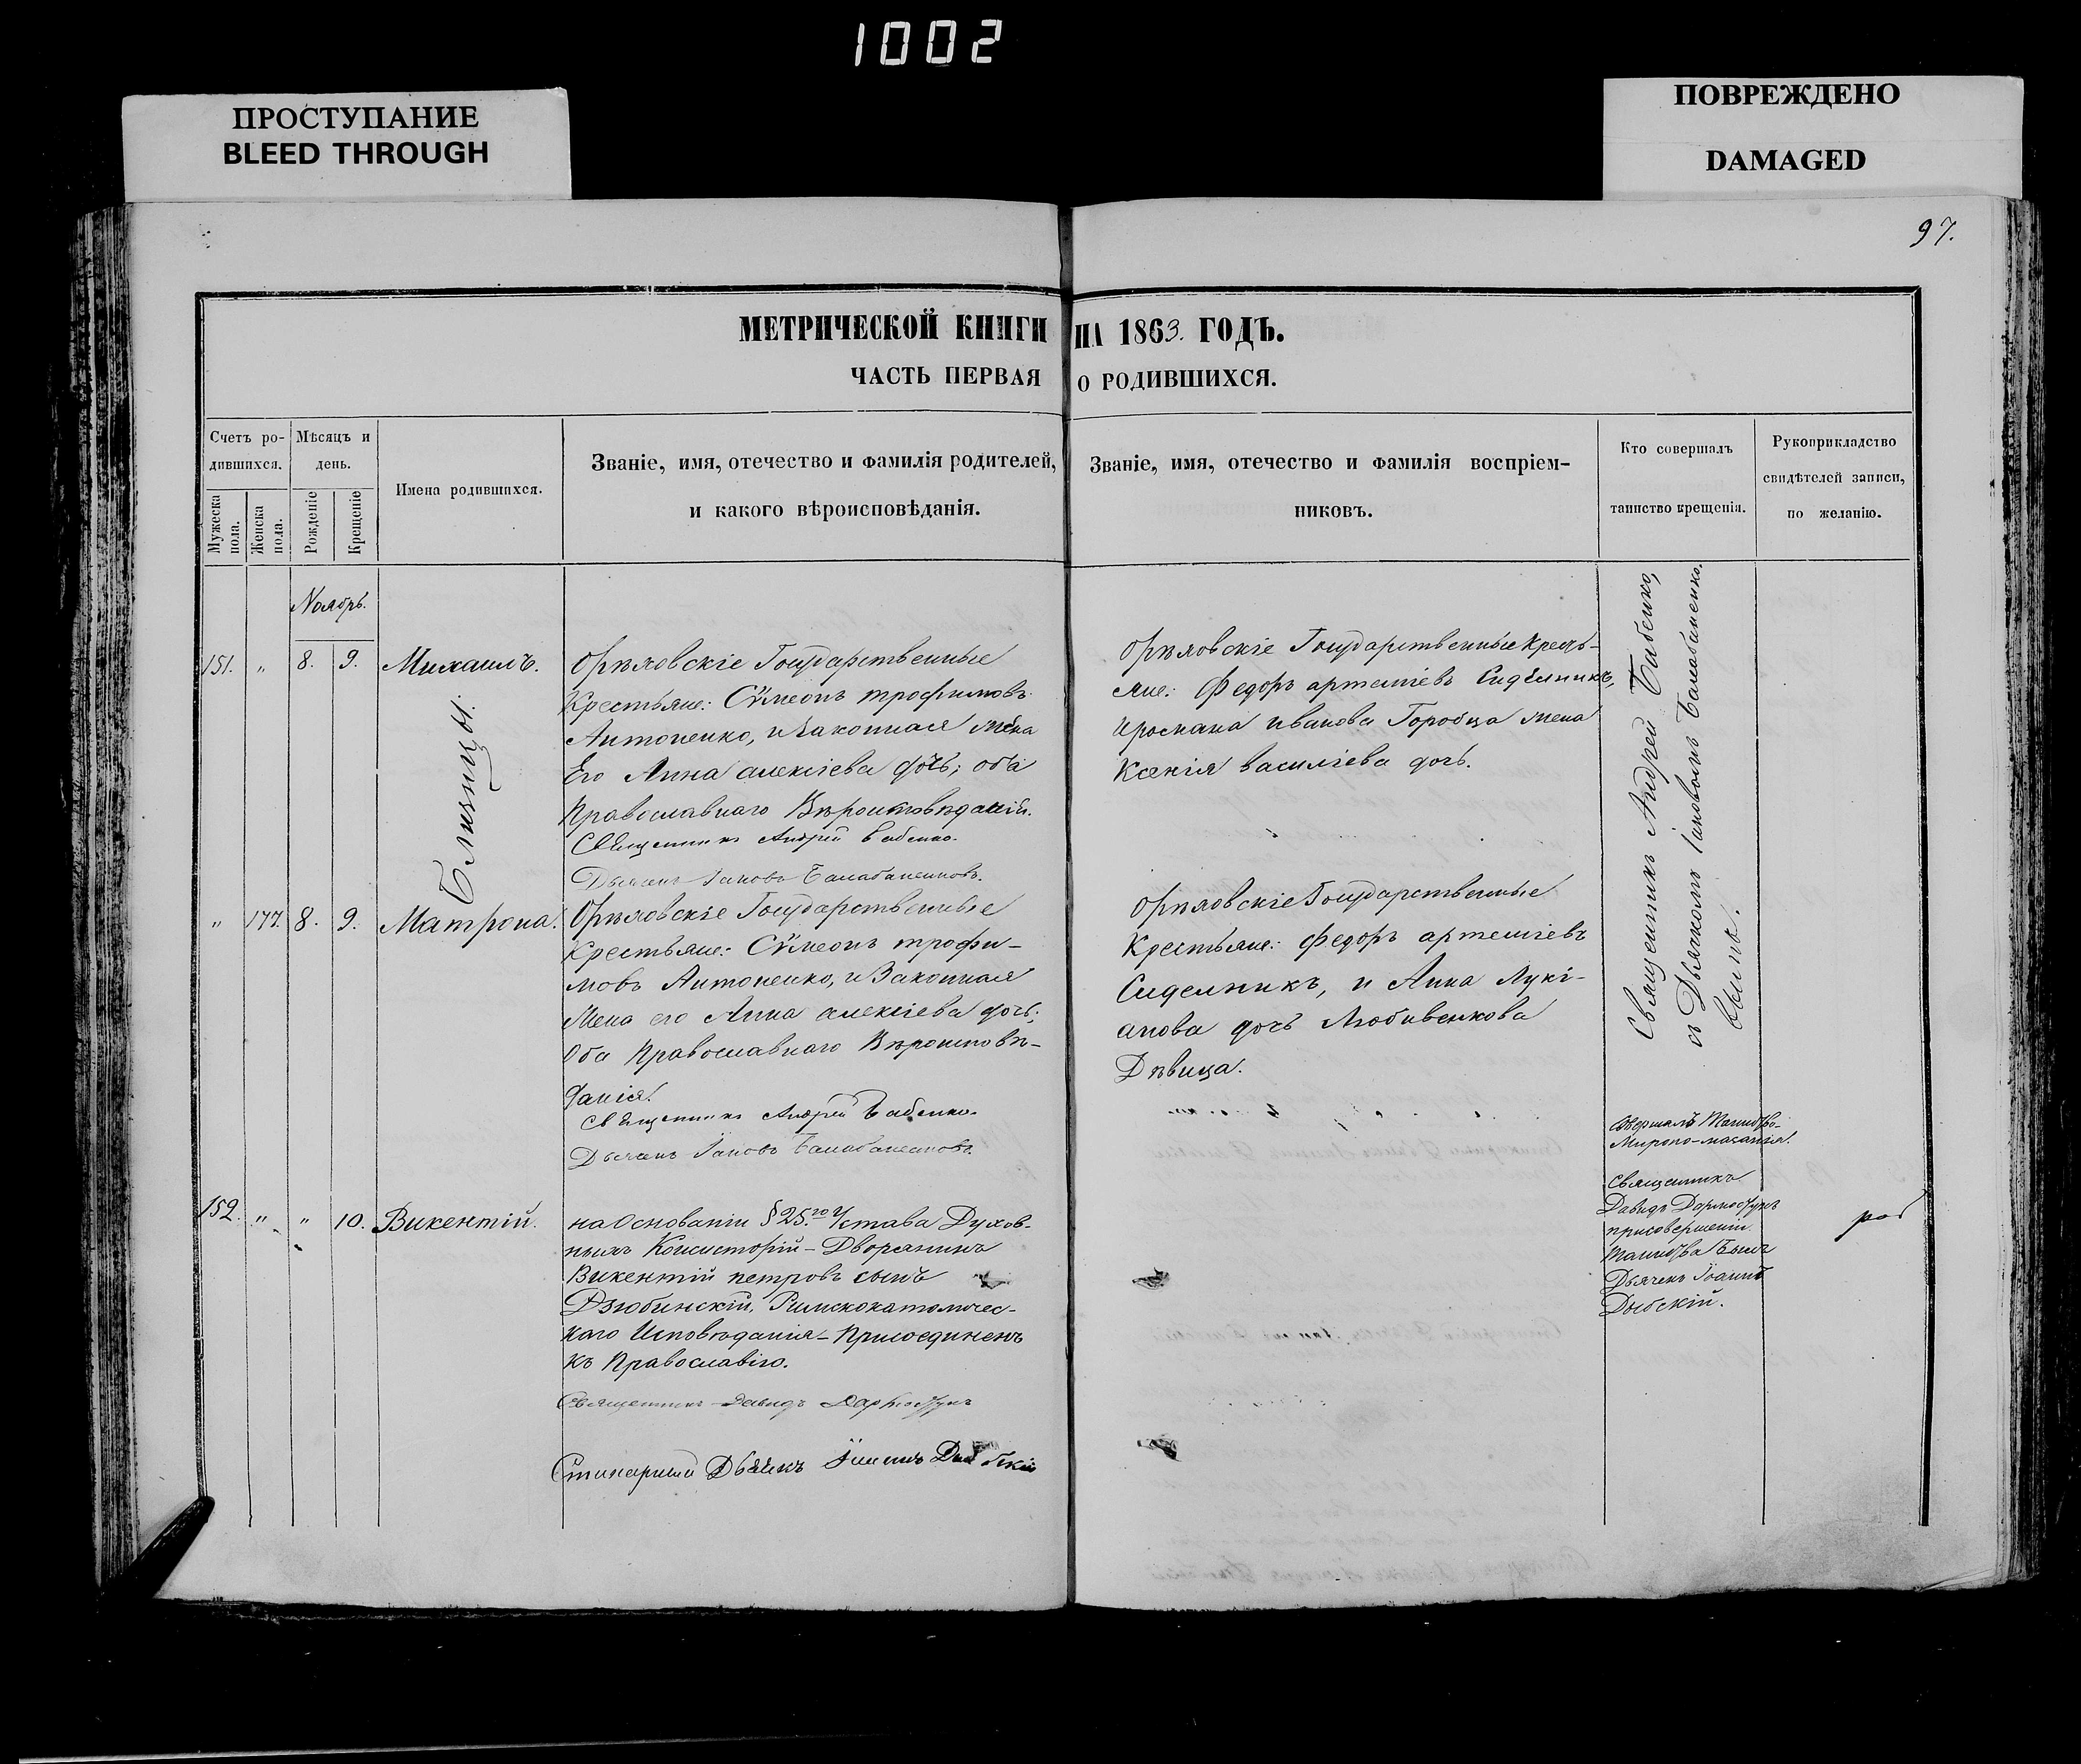 1002
ПРОСТУПАНИЕ
BLEED THROUGH
ПОВРЕЖДЕНО
DAMAGED
97.
МЕТРИЧЕСКОЙ КНИГИ НА 1863. ГОДЪ.
ЧАСТЬ ПЕРВАЯ О РОДИВШИХСЯ.
Счетъ ро-
дившихся.
Мужеска
пола.
Женска
пола.
Мѣсяцъ и
день.
Рожденіе
Крещеніе
Имена родившихся.
Званіе, имя, отечество и фамилія родителей,
и какого вѣроисповѣданія.
Званіе, имя, отечество и фамилія воспріем-
никовъ.
Кто совершалъ
таинство крещенія.
Рукоприкладство
свидѣтелей записи,
по желанію.
Ноябрь.
151. „ 8. 9. Михаилъ.
Близнцы.
Орѣховскіе Государственные
Крестьяне: Сѵмеонъ трофимовъ
Антоненко, и Законная жена
Его Анна алексіева дочь; оба
Православнаго Вѣроисповѣданія.
Священникъ Андрей Бабенко.
Дьячекъ Іаковъ Балабаненковъ.
Орѣховскіе Государственные Кресть-
яне: Федоръ артеміевъ Сидельникъ,
ироманa иванова Горобца жена
Ксенія василіева дочь.
Священникъ Андрей Бабенко,
съ Дьячкомъ Іаковомъ Балабаненко.
вымъ.
„ 177. 8. 9. Матрона.
Орѣховскіе Государственные
Крестьяне: Сѵмеонъ трофи-
мовъ Антоненко, и Законная
Жена его Анна алексіева дочь;
Оба Православнаго Вѣроисповѣ-
данія.
Священникъ Андрей Бабенко.
Дьячекъ Іаковъ Балабаненковъ.
Орѣховскіе Государственные
Крестьяне: Федоръ артеміевъ
Сидельникъ, и Анна Лукі-
анова дочь Любивенкова
Дѣвица.
152. „ „ 10. Викентій.
на Основаніи § 25.го Устава Духов-
ныхъ Консисторій - Дворянинъ
Викентій петровъ сынъ
Дзюбинскій, Римскокатоличес-
каго Исповѣданія - Присоединенъ
къ Православію.
Священникъ Давидъ
Дьячекъ
Совершалъ Таинство
Миропо-мазанія.
Священникъ
Давидъ
присовершеніи
Таинства Былъ
Дьячекъ Іоаннъ
Дыбскій.